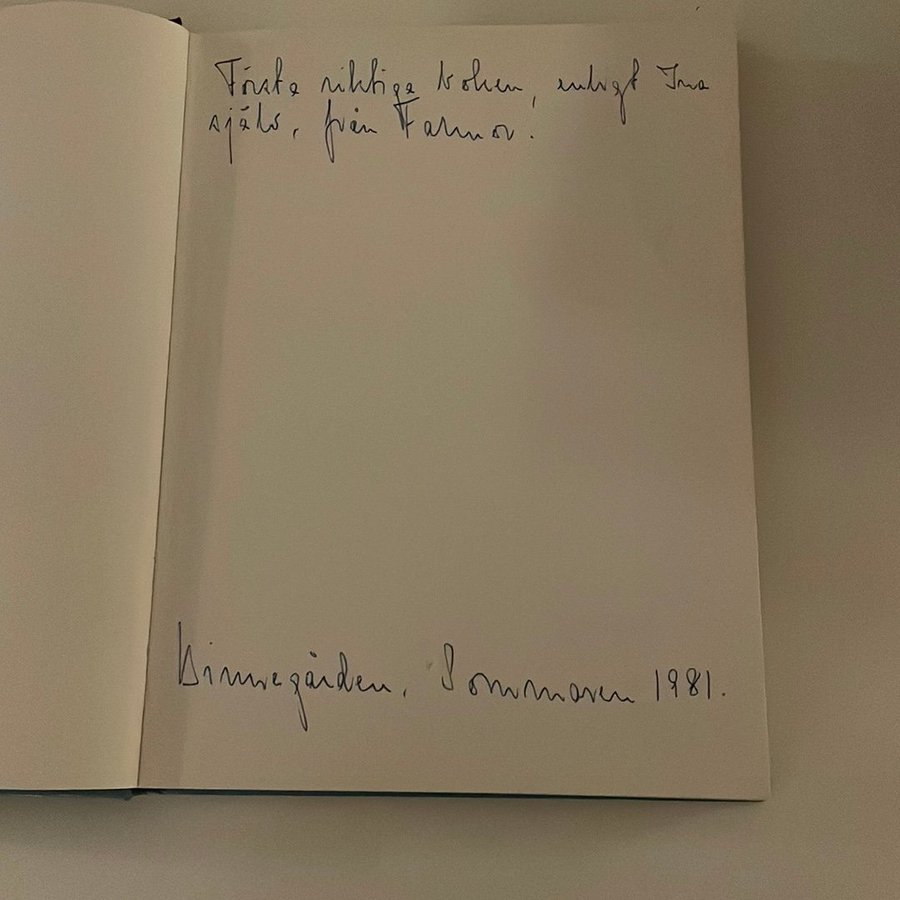 Första riktiga boken, enligt Ina
själv, från Farmor.
Sommaren 1981.